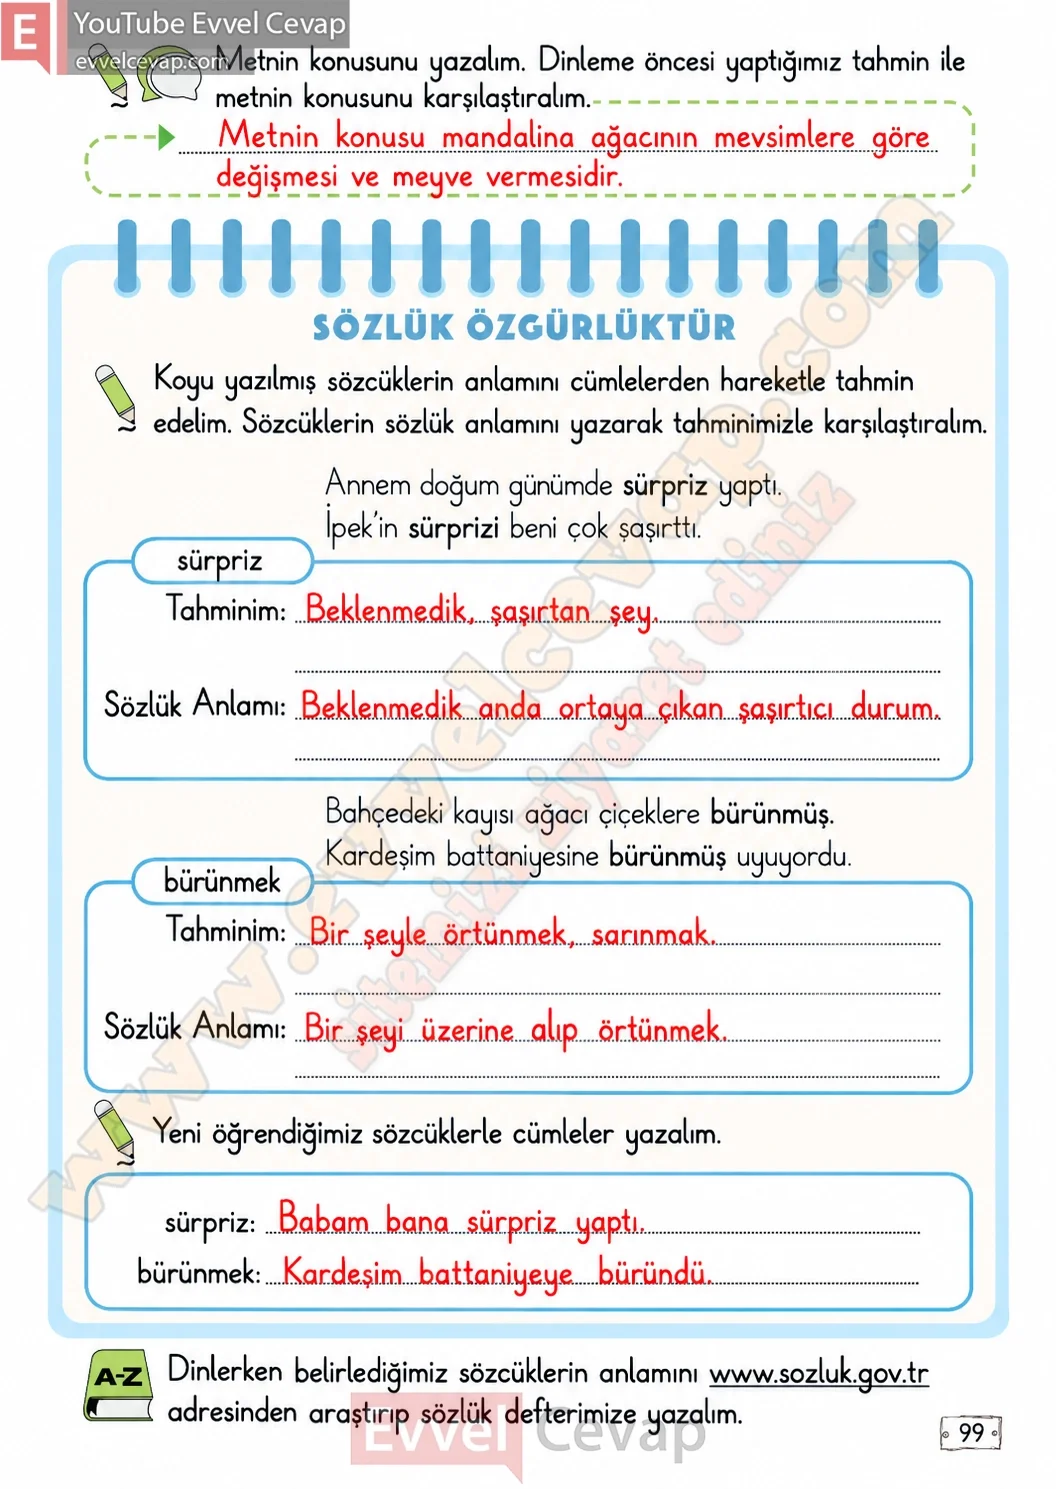 E YouTube Evvel Cevap
evvelcevap.com
Metnin konusunu yazalım. Dinleme öncesi yaptığımız tahmin ile
metnin konusunu karşılaştıralım.
Metnin konusu mandalina ağacının mevsimlere göre
değişmesi ve meyve vermesidir.
SÖZLÜK ÖZGÜRLÜKTÜR
Koyu yazılmış sözcüklerin anlamını cümlelerden hareketle tahmin
edelim. Sözcüklerin sözlük anlamını yazarak tahminimizle karşılaştıralım.
Annem doğum günümde sürpriz yaptı.
İpek'in sürprizi beni çok şaşırttı.
sürpriz
Tahminim: Beklenmedik, şaşırtan şey.
Sözlük Anlamı: Beklenmedik anda ortaya çıkan şaşırtıcı durum.
Bahçedeki kayısı ağacı çiçeklere bürünmüş.
Kardeşim battaniyesine bürünmüş uyuyordu.
bürünmek
Tahminim: Bir şeyle örtünmek, sarınmak.
Sözlük Anlamı: Bir şeyi üzerine alıp örtünmek.
Yeni öğrendiğimiz sözcüklerle cümleler yazalım.
sürpriz: Babam bana sürpriz yaptı.
bürünmek: Kardeşim battaniyeye büründü.
A-Z Dinlerken belirlediğimiz sözcüklerin anlamını www.sozluk.gov.tr
adresinden araştırıp sözlük defterimize yazalım.
Evvel Cevap
99
www.evvelcevap.com
sitemizi ziyaret ediniz